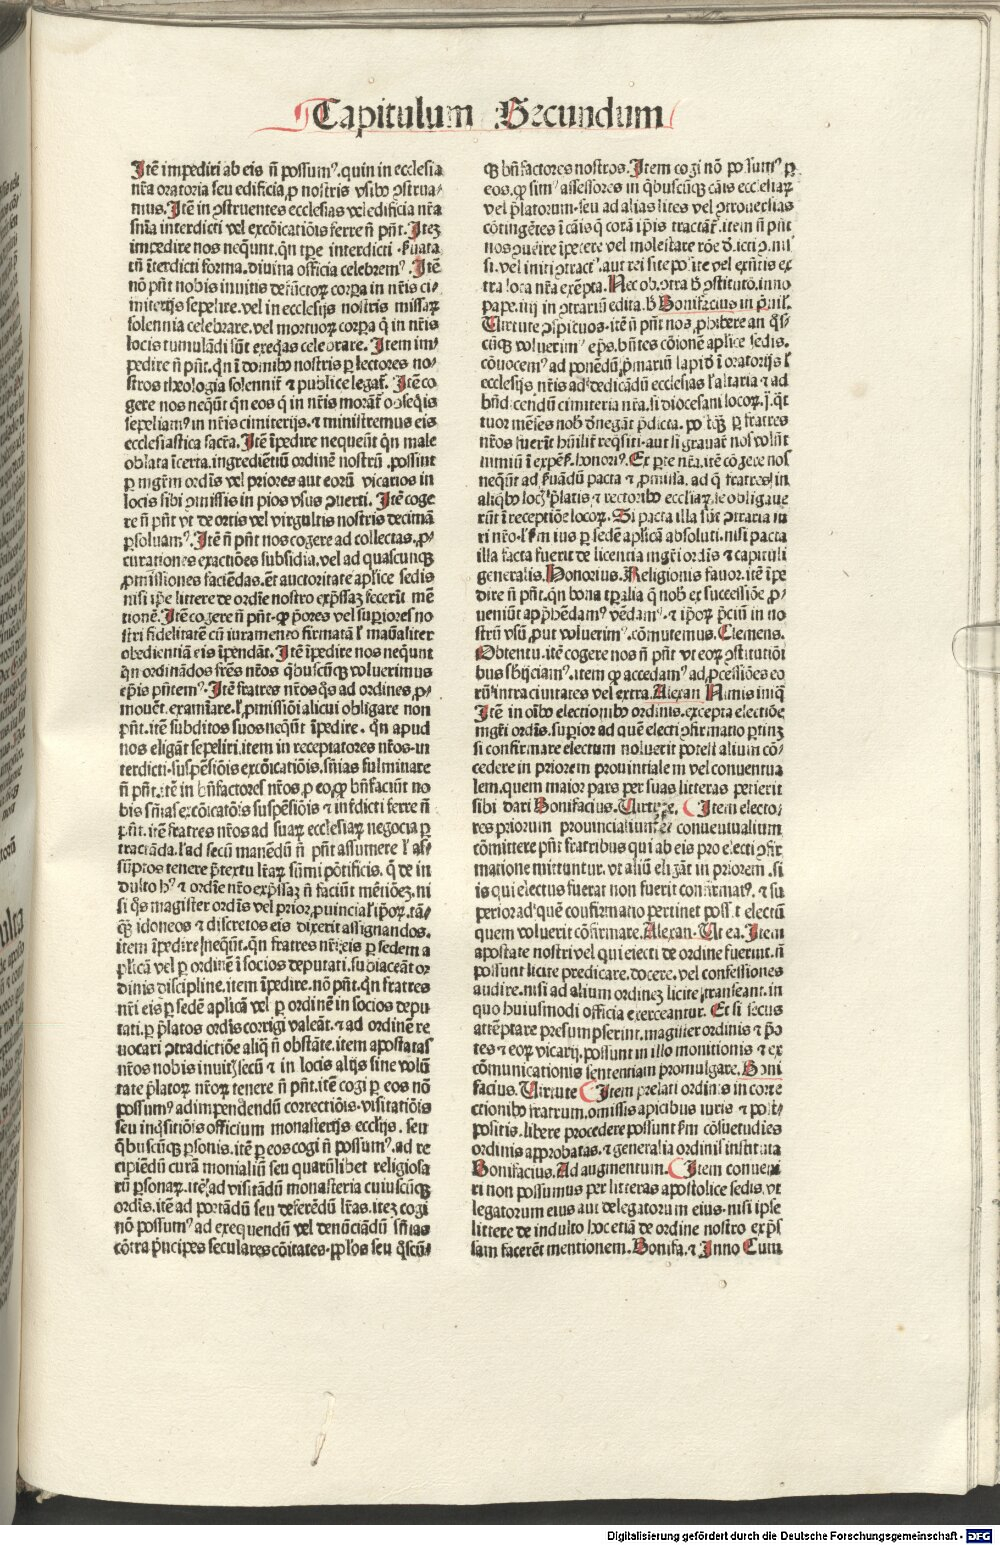 Capitulum Secundum
Itē impediri ab eis ñ possumꝰ. quin in ecclesia
nr̄a oratoria seu edificia, ꝓ nostris vsibꝰ ꝯstrua/
mus. Itē in ꝯstruentes ecclesias vel edificia nr̄a
sn̄ia interdicti vel excōicatiōis ferre ñ pñt. Iteꝫ
impedire nos neqͥunt. qͥn tp̄e interdicti ẜuata
tn̄ īterdicti forma. diuina officia celebremꝰ. Itē
nō pñt nobis inuitis defūctoꝝ corpa in nr̄is ci/
miterijs sepelire. vel in ecclesijs nostris missaꝝ
solennia celebrare. vel mortuoꝝ corpa q̄ in nr̄is
locis tumulādi sūt exeqͥas celebrare. Item im/
pedire ñ pñt. qͥn ī domibꝰ nostris ꝑ lectores no/
stros theologia solennit̄ ⁊ publice legat̄. Itē co
gere nos neqͥūt qͥn eos q̄ in nr̄is morāt̄ obseqͥis
sepeliamꝰ in nr̄is cimiterijs. ⁊ ministremus eis
ecclesiastica sacr̄a. Itē īpedire nequeūt qͥn male
oblata īcerta. ingrediētiū ordinē nostrū. possint
ꝑ mgr̄m ordīs vel priores aut eorū vicarios in
locis sibi ꝯmissis in pios vsus ꝯuerti. Itē coge
re ñ pñt vt de ortis vel virgultis nostris decimā
ꝑsoluamꝰ. Itē ñ pñt nos cogere ad collectas. ꝓ/
curationes exactiōes subsidia. vel ad quascunqꝫ
ꝓmissiones faciēdas. et̄ auctoritate aplīce sedis
nisi ip̄e littere de ordīe nostro exp̄ssaꝫ fecerīt mē
tionē. Itē cogere ñ pñt. ꝙ p̄ores vel suꝑiores no/
stri fidelitatē cū iuramento firmatā l̓ manualiter
obedientiā eis īpendāt. Itē īpedire nos neqͥunt
qͥn ordinādos fr̄es nr̄os qͥbuscūqꝫ voluerimus
ep̄is pñtemꝰ. Itē fratres nr̄os qͥs ad ordines ꝓ/
mouēt. examīare. l̓ ꝓmissiōi alicui obligare non
pñt. itē subditos suos neqͥūt īpedire. qͥn apud
nos eligāt sepeliri. item in receptatores nr̄os. in
terdicti. suspēsiōis excōicatiōis. sn̄ias fulminare
ñ pñt. itē in bn̄factores nr̄os, ꝓ eo, ꝙ bn̄faciūt no
bis sn̄ias excōicatōis suspēsiōis ⁊ int̄dicti ferre ñ
pñt. itē fratres nr̄os ad suaꝝ ecclesiaꝝ negocia ꝑ
tractāda. l̓ ad secū manēdū ñ pñt assumere l̓ as/
sūptos tenere p̄textu lr̄aꝝ sūmi pōtificis. q̄ de in
dulto hꝰ ⁊ ordīe nr̄o exp̄ssaꝫ ñ faciūt mētiōeꝫ. ni
si qͥs magister ordīs vel prior, ꝓuincial̓ ip̄oꝝ. tā/
qꝫ idoneos ⁊ discretos eis dixerit assignandos.
item īpedire neqͥūt. qͥn fratres nr̄i eis ꝑ sedem a
plīcā vel ꝑ ordinē ī socios deputati. subiaceāt or
dinis discipline. item īpedire. nō pñt. qͥn fratres
nr̄i eis ꝑ sedē aplīcā vel ꝑ ordinē in socios depu
tati. ꝑ p̄latos ordīs corrigi valeāt. ⁊ ad ordinē re
uocari ꝯtradictiōe aliqͣ ñ obstāte. item apostatas
nr̄os nobis inuitꝭ secū ⁊ in locis alijs sine volū
tate p̄latoꝝ nr̄oꝝ tenere ñ pñt. itē cogi ꝑ eos nō
possumꝰ ad impendendū correctiōis. visitatiōis
seu inqͥsitiōis officium monasterijs ecclīis. seu
qͥbuscūqꝫ ꝑsonis. itē ꝑ eos cogi ñ possumꝰ. ad re
cipiēdū curā monialiū seu quarūlibet religiosa
rū ꝑsonaꝝ. itē ad visitādū monasteria cuiuscūqꝫ
ordīs. itē ad portādū seu deferēdū lr̄as. iteꝫ cogi
nō possumꝰ ad exequendū vel denūciādū sn̄ias
cōtra p̄ncipes seculares cōitates. ppl̄os seu qͥscū/
qꝫ bn̄factores nostros. Item cogi nō possumꝰ ꝑ
eos, ꝙ simꝰ assessores in qͥbuscūqꝫ cāis ecclesiaꝝ
vel p̄latorum. seu ad alias lites vel ꝯtrouersias
cōtingētes ī cāis q̄ corā ip̄is tractāt̄. item ñ pñt
nos ꝯuenire īpetere vel molestare rōe d̓licti ꝯmis
si. vel initi ꝯtractꝰ. aut rei site posite vel exn̄tis ex
tra loca nr̄a exēpta. Nec obꝫ. ꝯtra hꝰ ꝯstitutō. inno
pape. iiij in ꝯtrariū edita. hꝰ Bonifacius in p̄uil.
Virtute ꝯspicuos. itē ñ pñt nos, ꝓhibere an qͥs/
cūqꝫ voluerimꝰ ep̄os. hn̄tes cōionē aplīce sedis.
cōuocemꝰ ad ponēdū p̄mariū lapidē ī oratorijs l̓
ecclesijs nr̄is ad dedicādū ecclesias l̓ altaria ⁊ ad
bn̄dicendū cimiteria nr̄a. si diocesani locoꝝ. ꝑ qͣt
tuor mēses nob̓ dn̄egāt p̄dicta. postqͣꝫ ꝑ fratres
nr̄os fuerīt hūilit̄ reqͥsiti. aut si grauat̄ nos volūt
nimiū ī expēs̓. honoriꝰ. Ex ꝑte nr̄a. itē cogere nos
neqͥūt ad ẜuādū pacta ⁊ ꝓmissa. ad q̄ fratres in
aliqͥbꝰ locꝭ p̄latis ⁊ rectoribꝰ eccl̄iaꝝ se obligaue
rūt ī receptiōe locoꝝ. Si pacta illa sūt ꝯtraria iu
ri nr̄o. l̓ ẜm ius ꝑ sedē aplīcā absoluti. nisi pacta
illa facta fuerīt de licentia mgr̄i ordīs ⁊ capituli
generalis. Honorius. Religionis fauor. itē īpe
dire ñ pñt. qͥn bona tꝑalia q̄ nob̓ ex successiōe ꝓ/
ueniūt app̄hēdamꝰ. vēdamꝰ. ⁊ ip̄oꝝ p̄ciū in no
strū vsū, ꝓut voluerimꝰ. cōmutemus. Clemens.
Obtentu. itē cogere nos ñ pñt vt eoꝝ ꝯstitutiōi
bus sbijciamꝰ. item ꝙ accedamꝰ ad, ꝓcessiōes eo
rū intra ciuitates vel extra. Alexan Nimis iniqͣ
Itē in oībꝰ electionibꝰ ordinis. excepta electiōe
mgr̄i ordīs. suꝑior ad quē electi ꝯfirmatio ꝑtinꝫ
si confirmare electum noluerit poterit alium cō/
cedere in priorem prouintialem vel conuentua
lem. quem maior pars per suas litteras petierit
sibi dari Bonifacius. Virtute. Item electo/
res priorum prouincialium et conuentualium
cōmittere pñt fratribus qui ab eis pro electi ꝯfir
matione mittuntur. vt aliū eligāt in priorem. si
is qui electus fuerat non fuerit confirmatꝰ. ⁊ su
perior ad quē confirmatio pertinet posset electū
quem voluerit cōfirmare. Alexan. Vt ea. Item
apostate nostri vel qui eiecti de ordine fuerint. ñ
possunt licite predicare. docere. vel confessiones
audire. nisi ad alium ordineꝫ licite transeant. in
quo huiusmodi officia exerceantur. Et si secus
attēptare presumpserint. magister ordinis ⁊ p̄o
res ⁊ eoꝝ vicarij. possunt in illo monitionis ⁊ ex
cōmunicationis sententiam promulgare. Boni
facius. Virtute Item prelati ordinis in corre
ctionibꝰ fratrum. omissis apicibus iuris ⁊ post/
positis. libere procedere possunt ẜm cōsuetudies
ordinis approbatas. ⁊ generalia ordinis instituta
Bonifacius. Ad augmentum. Item conueni
ri non possumus per litteras apostolice sedis. vt
legatorum eius aut delegatorum eius. nisi ipse
littere de indulto hoc etiā de ordine nostro exp̄s
sam facerēt mentionem. Bonifa. ⁊ Inno Cum
Digitalisierung gefördert durch die Deutsche Forschungsgemeinschaft - DFG